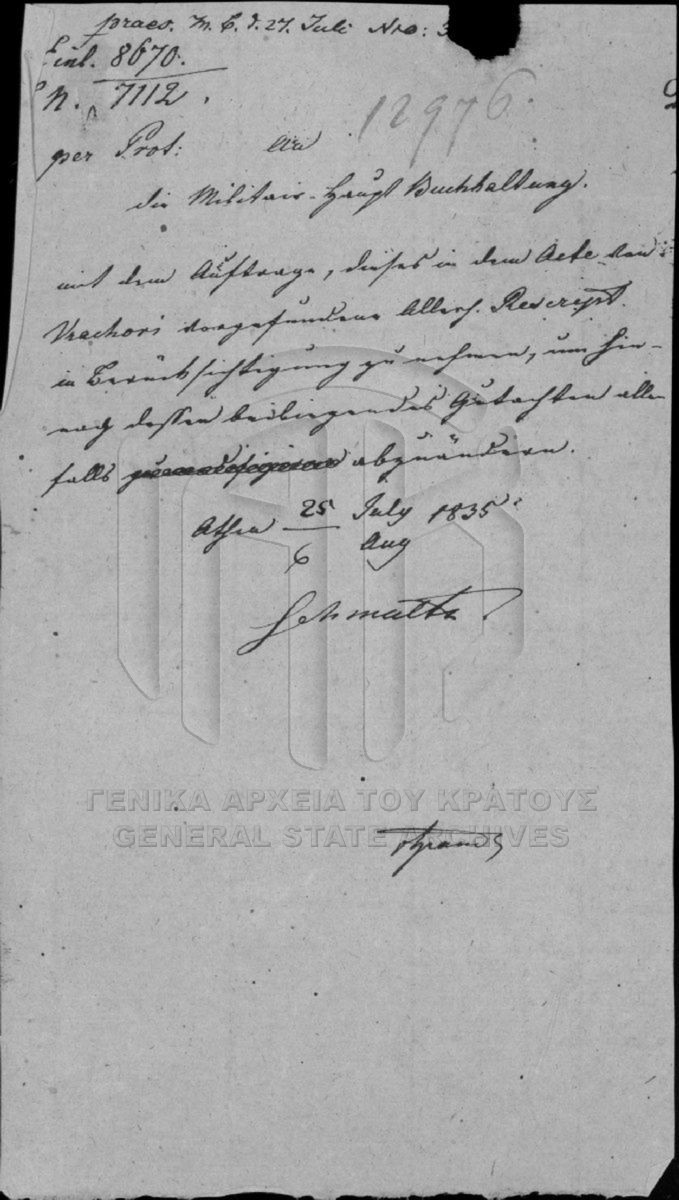 praes. M. C. d. 27. Juli Nro: 3
Einl. 8670.
N. 7112.
12976.
per Prot: An
die Militair-Haupt Buchhaltung.
mit dem Auftrage, dieses in dem Acte von
Vrachori vorgefundene Allerh. Rescript
in Berücksichtigung zu nehmen, um hier-
nach dessen beiliegendes Gutachten allen-
falls abzuändern.
Athen 25 July 1835
6 Aug
Schmaltz
ΓΕΝΙΚΑ ΑΡΧΕΙΑ ΤΟΥ ΚΡΑΤΟΥΣ
GENERAL STATE ARCHIVES